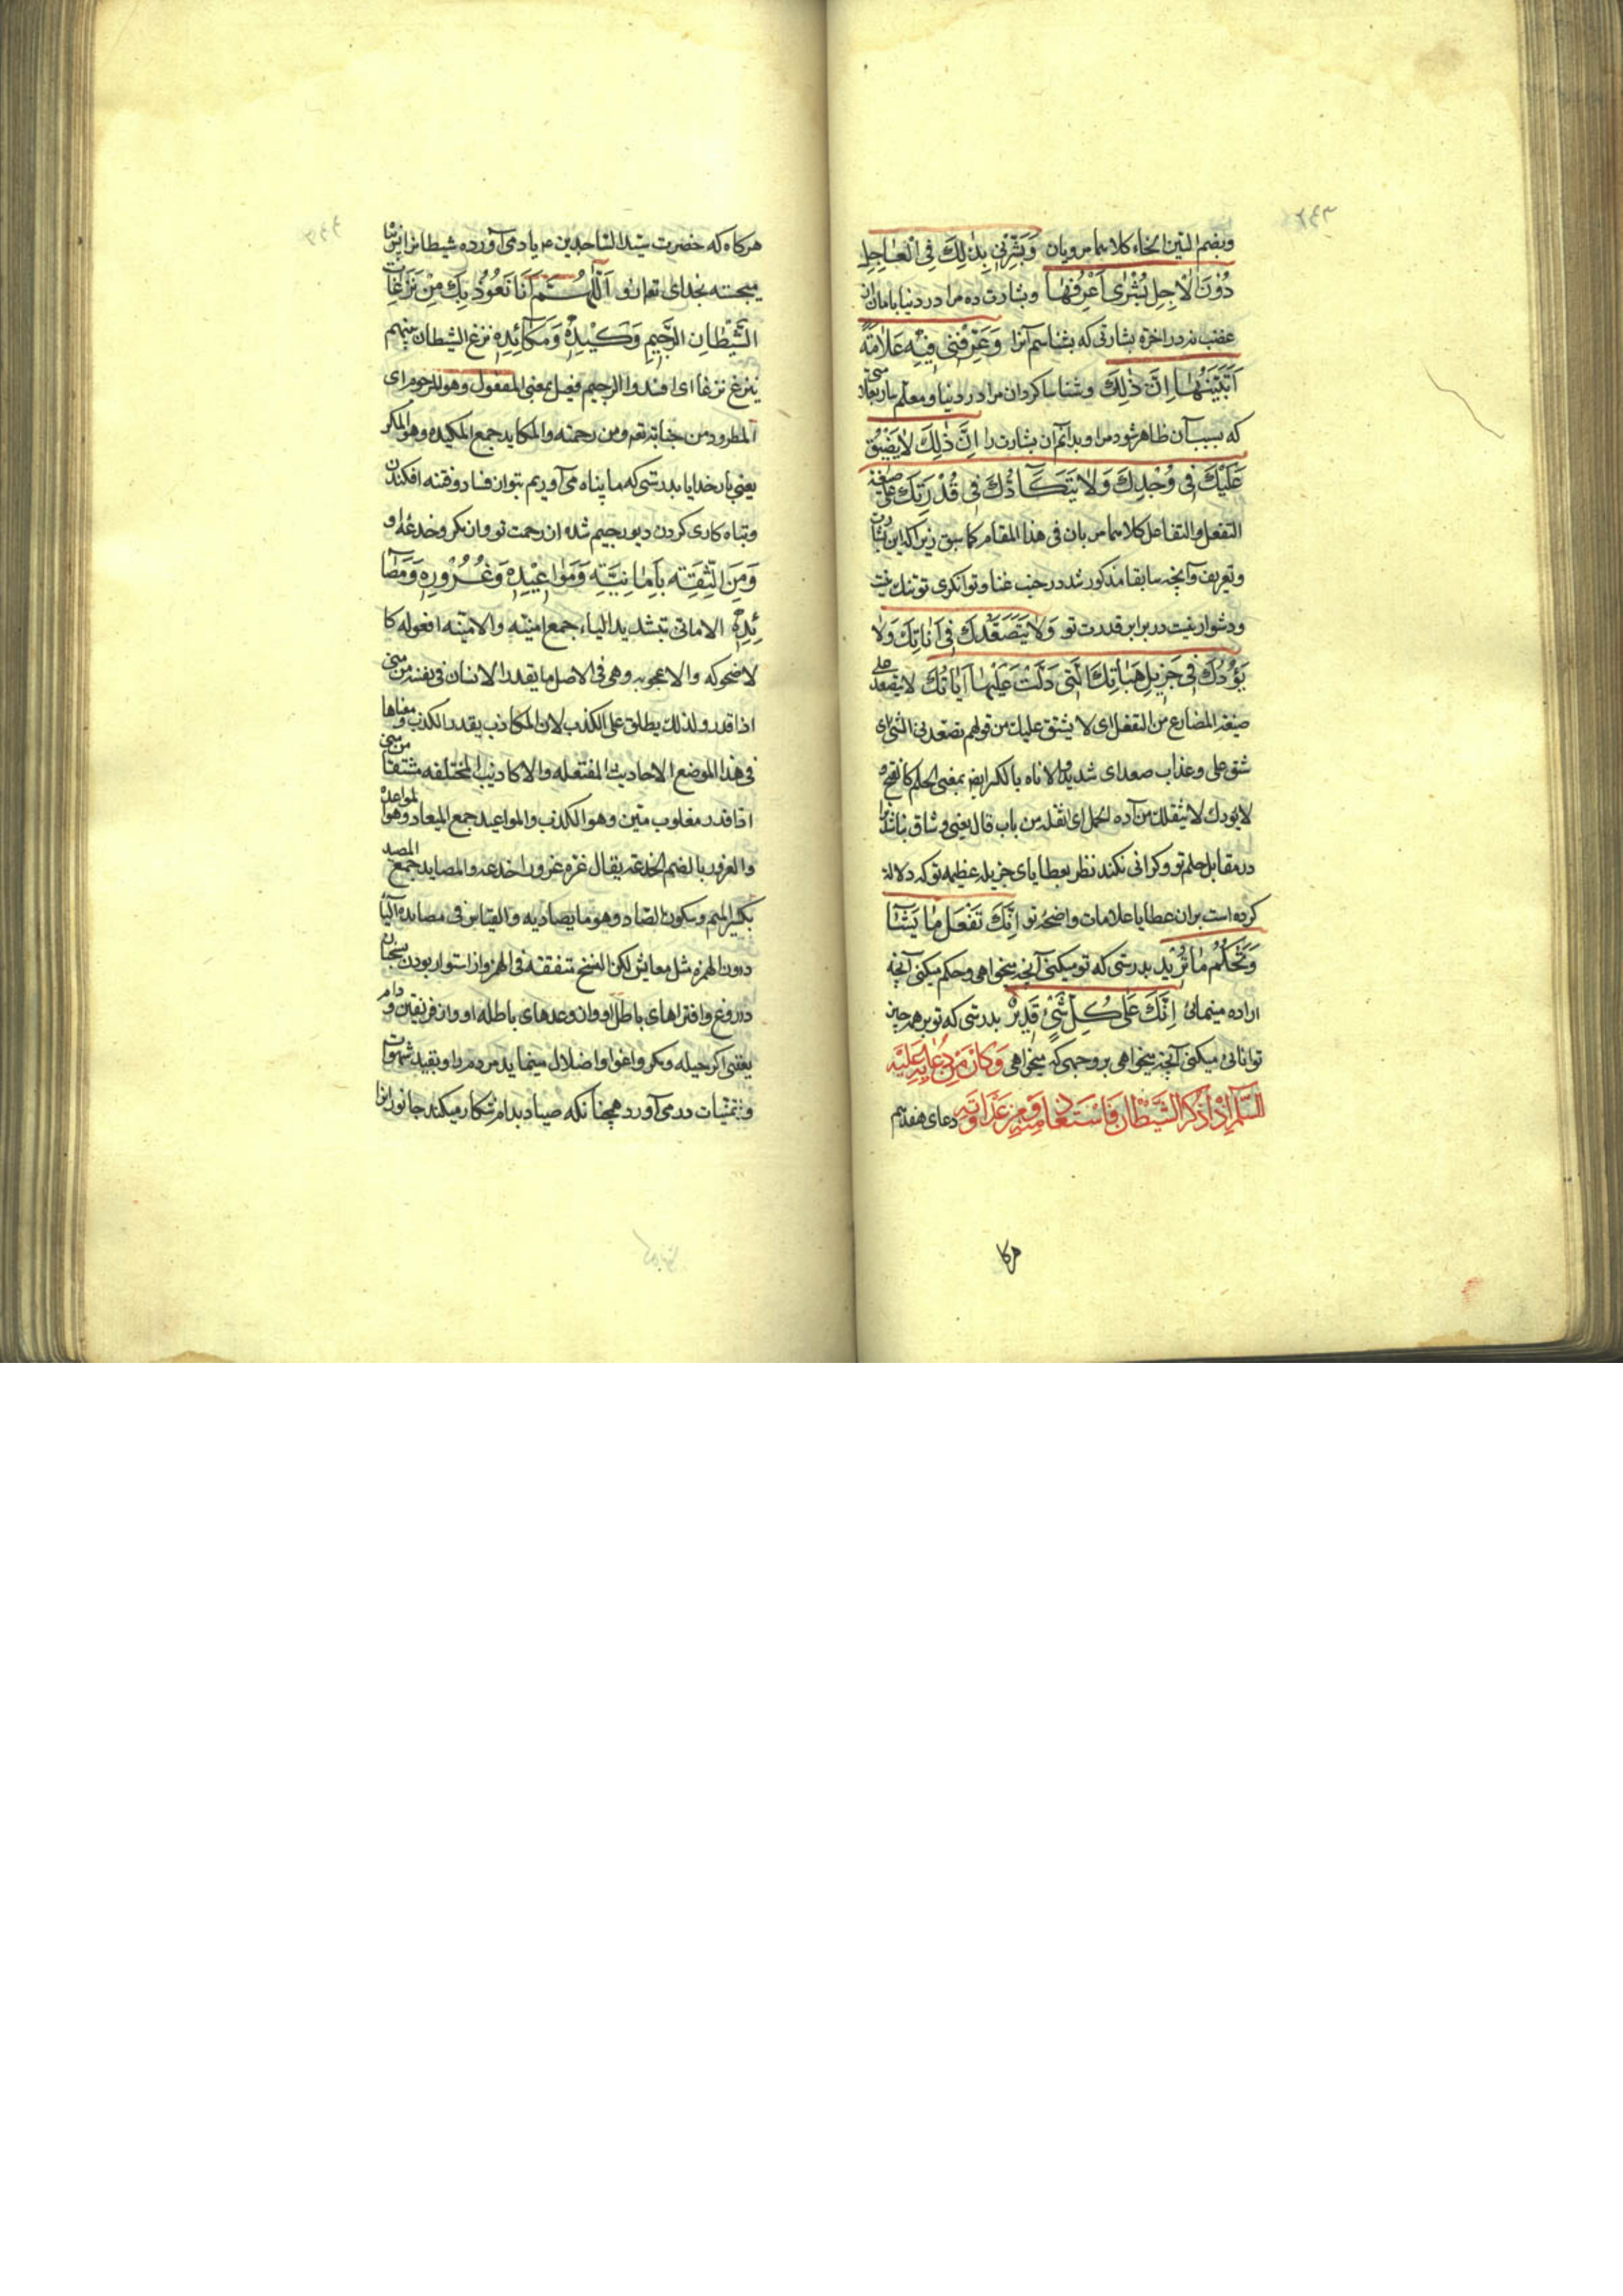 وبضم السین الخاء کلاهما مرویان وَبَشِّرْنِی بِذٰلِکَ فِی الْعٰاجِلِ
دُوْنَ الْاٰجِلِ بُشْرٰی اَعْرِفُهٰا وبشارت ده مرا در دنیا بامان از
غضب نه در اخرة بشارتی که بشناسم آنرا وَعَرِّفْنِی فِیْهِ عَلٰامَةً
اَتَبَیَّنُهٰا اِنَّ ذٰلِکَ وشناسا کردان مرا در دنیا ومعلم ساز بعلامتی
که بسبب آن ظاهر شود مرا وبدانم آن بشارت را اِنَّ ذٰلِکَ لٰا یَضِیْقُ
عَلَیْکَ فِی وُجْدِکَ وَلٰا یَتَکَأَّدُکَ فِی قُدْرَتِکَ علی صیغة
التفعل والتفاعل کلاهما مرویان فی هذا المقام کما سبق زیرا که این بشارت
وتعریف وآنچه سابقا مذکور شد در جنب غنا وتوانکری تو تنک نیست
ودشوار نیست در برابر قدرت تو وَلٰا یَتَصَعَّدُکَ فِی اَنٰاتِکَ وَلٰا
یَؤُدُکَ فِی جَزِیلِ هِبٰاتِکَ الَّتِی دَلَّتْ عَلَیْهٰا اٰیٰاتُکَ لا یتصعد علی
صیغة المضارع من التفعل ای لا یشق علیک من قولهم تصعدنی الشئ ای
شق علی وعذاب صعد ای شدید والاناه بالکسر ایضا بمعنی الحلم کالفتح و
لا یؤدک لا یثقلک من آده الحمل ای اثقله من باب قال یعنی وشاق نباشد ترا
در مقابل حلم تو وکرانی نکند نظر بعطایای جزیله عظیمه تو که دلالة
کرده است بران عطایا علامات واضحۀ تو اِنَّکَ تَفْعَلُ مٰا یَشٰآءُ
وَتَحْکُمُ مٰا تُرِیْد بدرستی که تو میکنی آنچه میخواهی وحکم میکنی آنچه
اراده مینمائی اِنَّکَ عَلٰی کُلِّ شَیْءٍ قَدِیْرٌ بدرستی که تو بر همه چیز
توانائی میکنی آنچه میخواهی بر وجهی که میخواهی وَکَانَ مِنْ دُعٰائِهِ عَلَیْهِ
السَّلٰمُ اِذْا ذُکِرَ الشَّیْطٰانُ فَاسْتَعٰاذَ مِنْهُ وَمِنْ عَدٰاوَتِهِ دعای هفدهم
هرکا
هرکاه که حضرت سید الساجدین ع یاد می آورده شیطانرا پس پناه
میجسته بخدای تع از او اَللّٰهُمَّ اِنَّا نَعُوْذُ بِکَ مِنْ نَزَغٰاتِ
الشَّیْطٰانِ الرَّجِیْمِ وَکَیْدِهِ وَمَکٰآئِدِهِ نزغ الشیطان بینهم
ینزغ نزغا ای افسد والرجیم فعیل بمعنی المفعول وهو المرجوم ای
المطرود من جنابه تع ومن رحمته والمکاید جمع المکیده وهو المکر
یعنی بار خدایا بدرستی که ما پناه می آوریم بتو از فساد وفتنه افکندن
وتباه کاری کردن دیو رجیم شده از رحمت تو واز مکر وخدعۀ او
وَمِنَ الثِّقَةِ بِاَمٰانِیِّهِ وَمَوٰاعِیْدِهِ وَغُرُوْرِهِ وَمَصٰآ
ئِدِهِ الامانی بتشدید الیاء جمع امنیته والامنیه افعوله کا
لاضحوکه والاعجوبه وهی فی الاصل ما یقدر الانسان فی نفسه من منی
اذا قدر ولذلک یطلق علی الکذب لان الکاذب یقدر الکذب ومعناها
فی هذا الموضع الاحادیث المفتعله والاکاذیب المختلفه مشتقا من منی
اذا قدر مغلوب متین وهو الکذب والمواعید جمع المیعاد وهو المواعدة
والغرور بالضم الخدعه یقال غره غرورا خدعه والمصاید جمع المصید
بکسر المیم وسکون الصاد وهو ما یصاد به والقیاس فی مصایده الیاء
دون الهمزه مثل معایش لکن النسخ متفقة فی الهمز واز استوار بودن بسخنان
دروغ وافتراهای باطل او واز وعدهای باطله او واز فریفتن و دام
یعنی اکر حیله ومکر واغوا واضلال مینماید مردم را وبقید شهوات
ومتمنیات در می آورد همچنانکه صیاد بدام شکار میکند جانور انرا